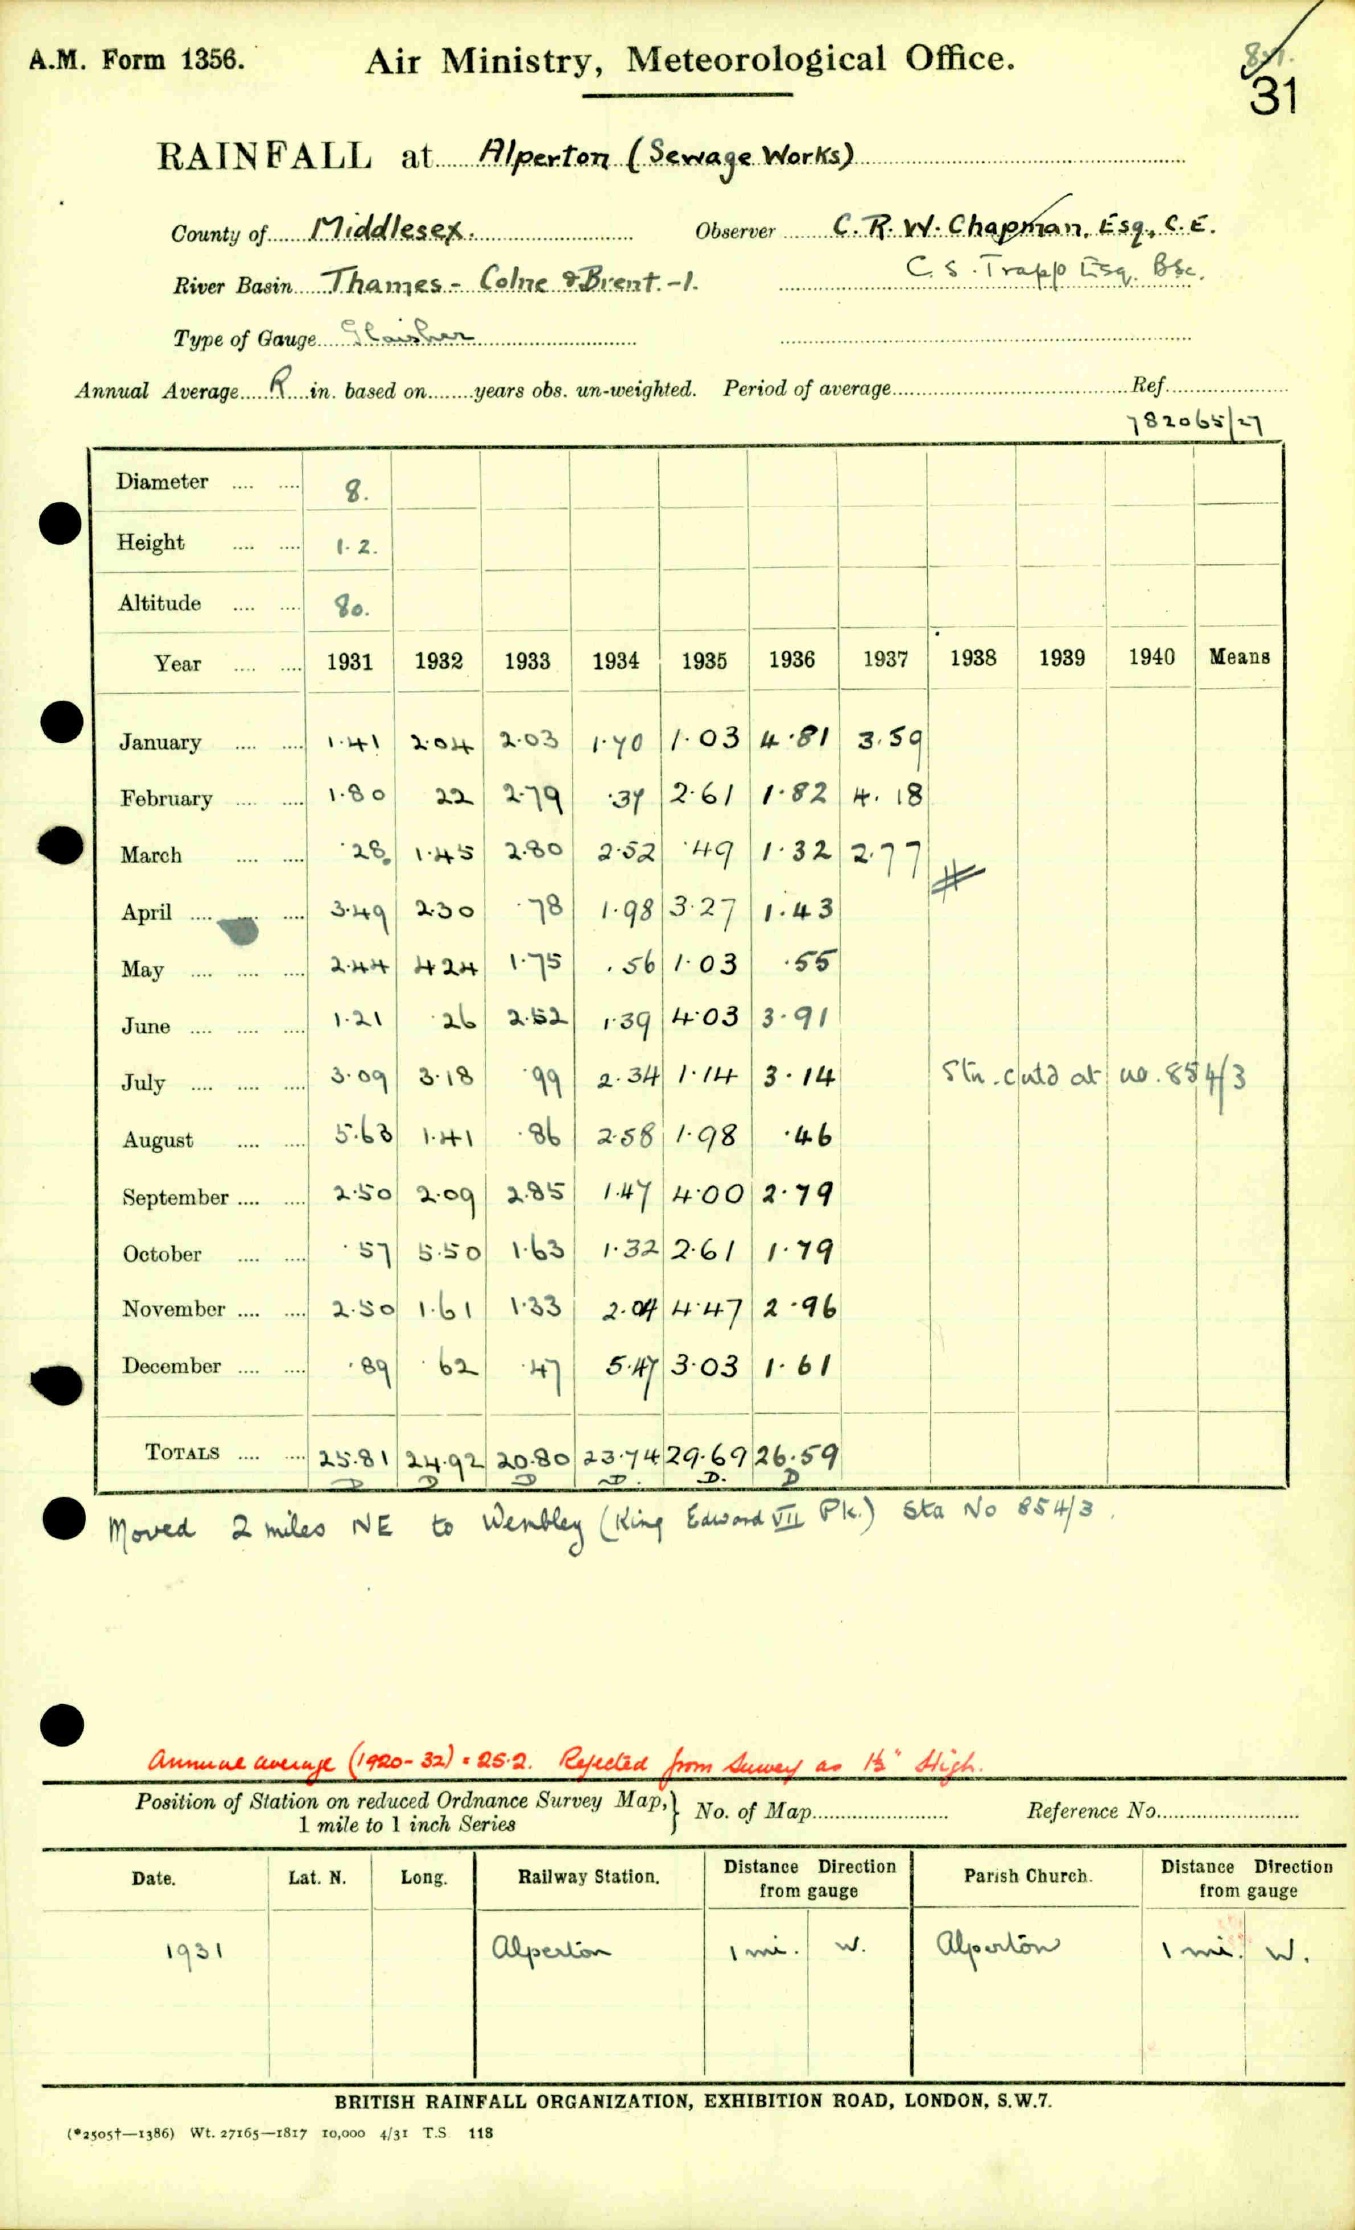 A.M. Form 1356.
Air Ministry, Meteorological Office.
31
RAINFALL at Alperton (Sewage Works)
County of Middlesex. Observer C. R. W. Chapman, Esq., C.E.
River Basin Thames - Colne & Brent. -1. C. S. Trapp Esq. BSc.
Type of Gauge Glaisher
Annual Average R in. based on years obs. un-weighted. Period of average Ref.
782065/27
Diameter 8.
Height 1.2.
Altitude 80.
Year 1931 1932 1933 1934 1935 1936 1937 1938 1939 1940 Means
January 1.41 2.04 2.03 1.70 1.03 4.81 3.59
February 1.80 22 2.79 .37 2.61 1.82 4.18
March .28 1.45 2.80 2.52 .49 1.32 2.77
April 3.49 2.30 .78 1.98 3.27 1.43
May 2.44 4.24 1.75 .56 1.03 .55
June 1.21 .26 2.52 1.39 4.03 3.91
July 3.09 3.18 .99 2.34 1.14 3.14 Stn. cntd at no. 854/3
August 5.63 1.41 .86 2.58 1.98 .46
September 2.50 2.09 2.85 1.47 4.00 2.79
October .57 5.50 1.63 1.32 2.61 1.79
November 2.50 1.61 1.33 2.04 4.47 2.96
December .89 .62 .47 5.47 3.03 1.61
TOTALS 25.81 24.92 20.80 23.74 29.69 26.59
D D D D. D. D
Moved 2 miles NE to Wembley (King Edward VII Pk.) Sta No 854/3.
Annual average (1920-32) = 25.2. Rejected from Survey as 1½" High.
Position of Station on reduced Ordnance Survey Map, } No. of Map Reference No.
1 mile to 1 inch Series
Date. Lat. N. Long. Railway Station. Distance Direction from gauge Parish Church. Distance Direction from gauge
1931 Alperton 1 mi. W. Alperton 1 mi. W.
BRITISH RAINFALL ORGANIZATION, EXHIBITION ROAD, LONDON, S.W.7.
(*2505†—1386) Wt. 27165—1817 10,000 4/31 T.S. 118